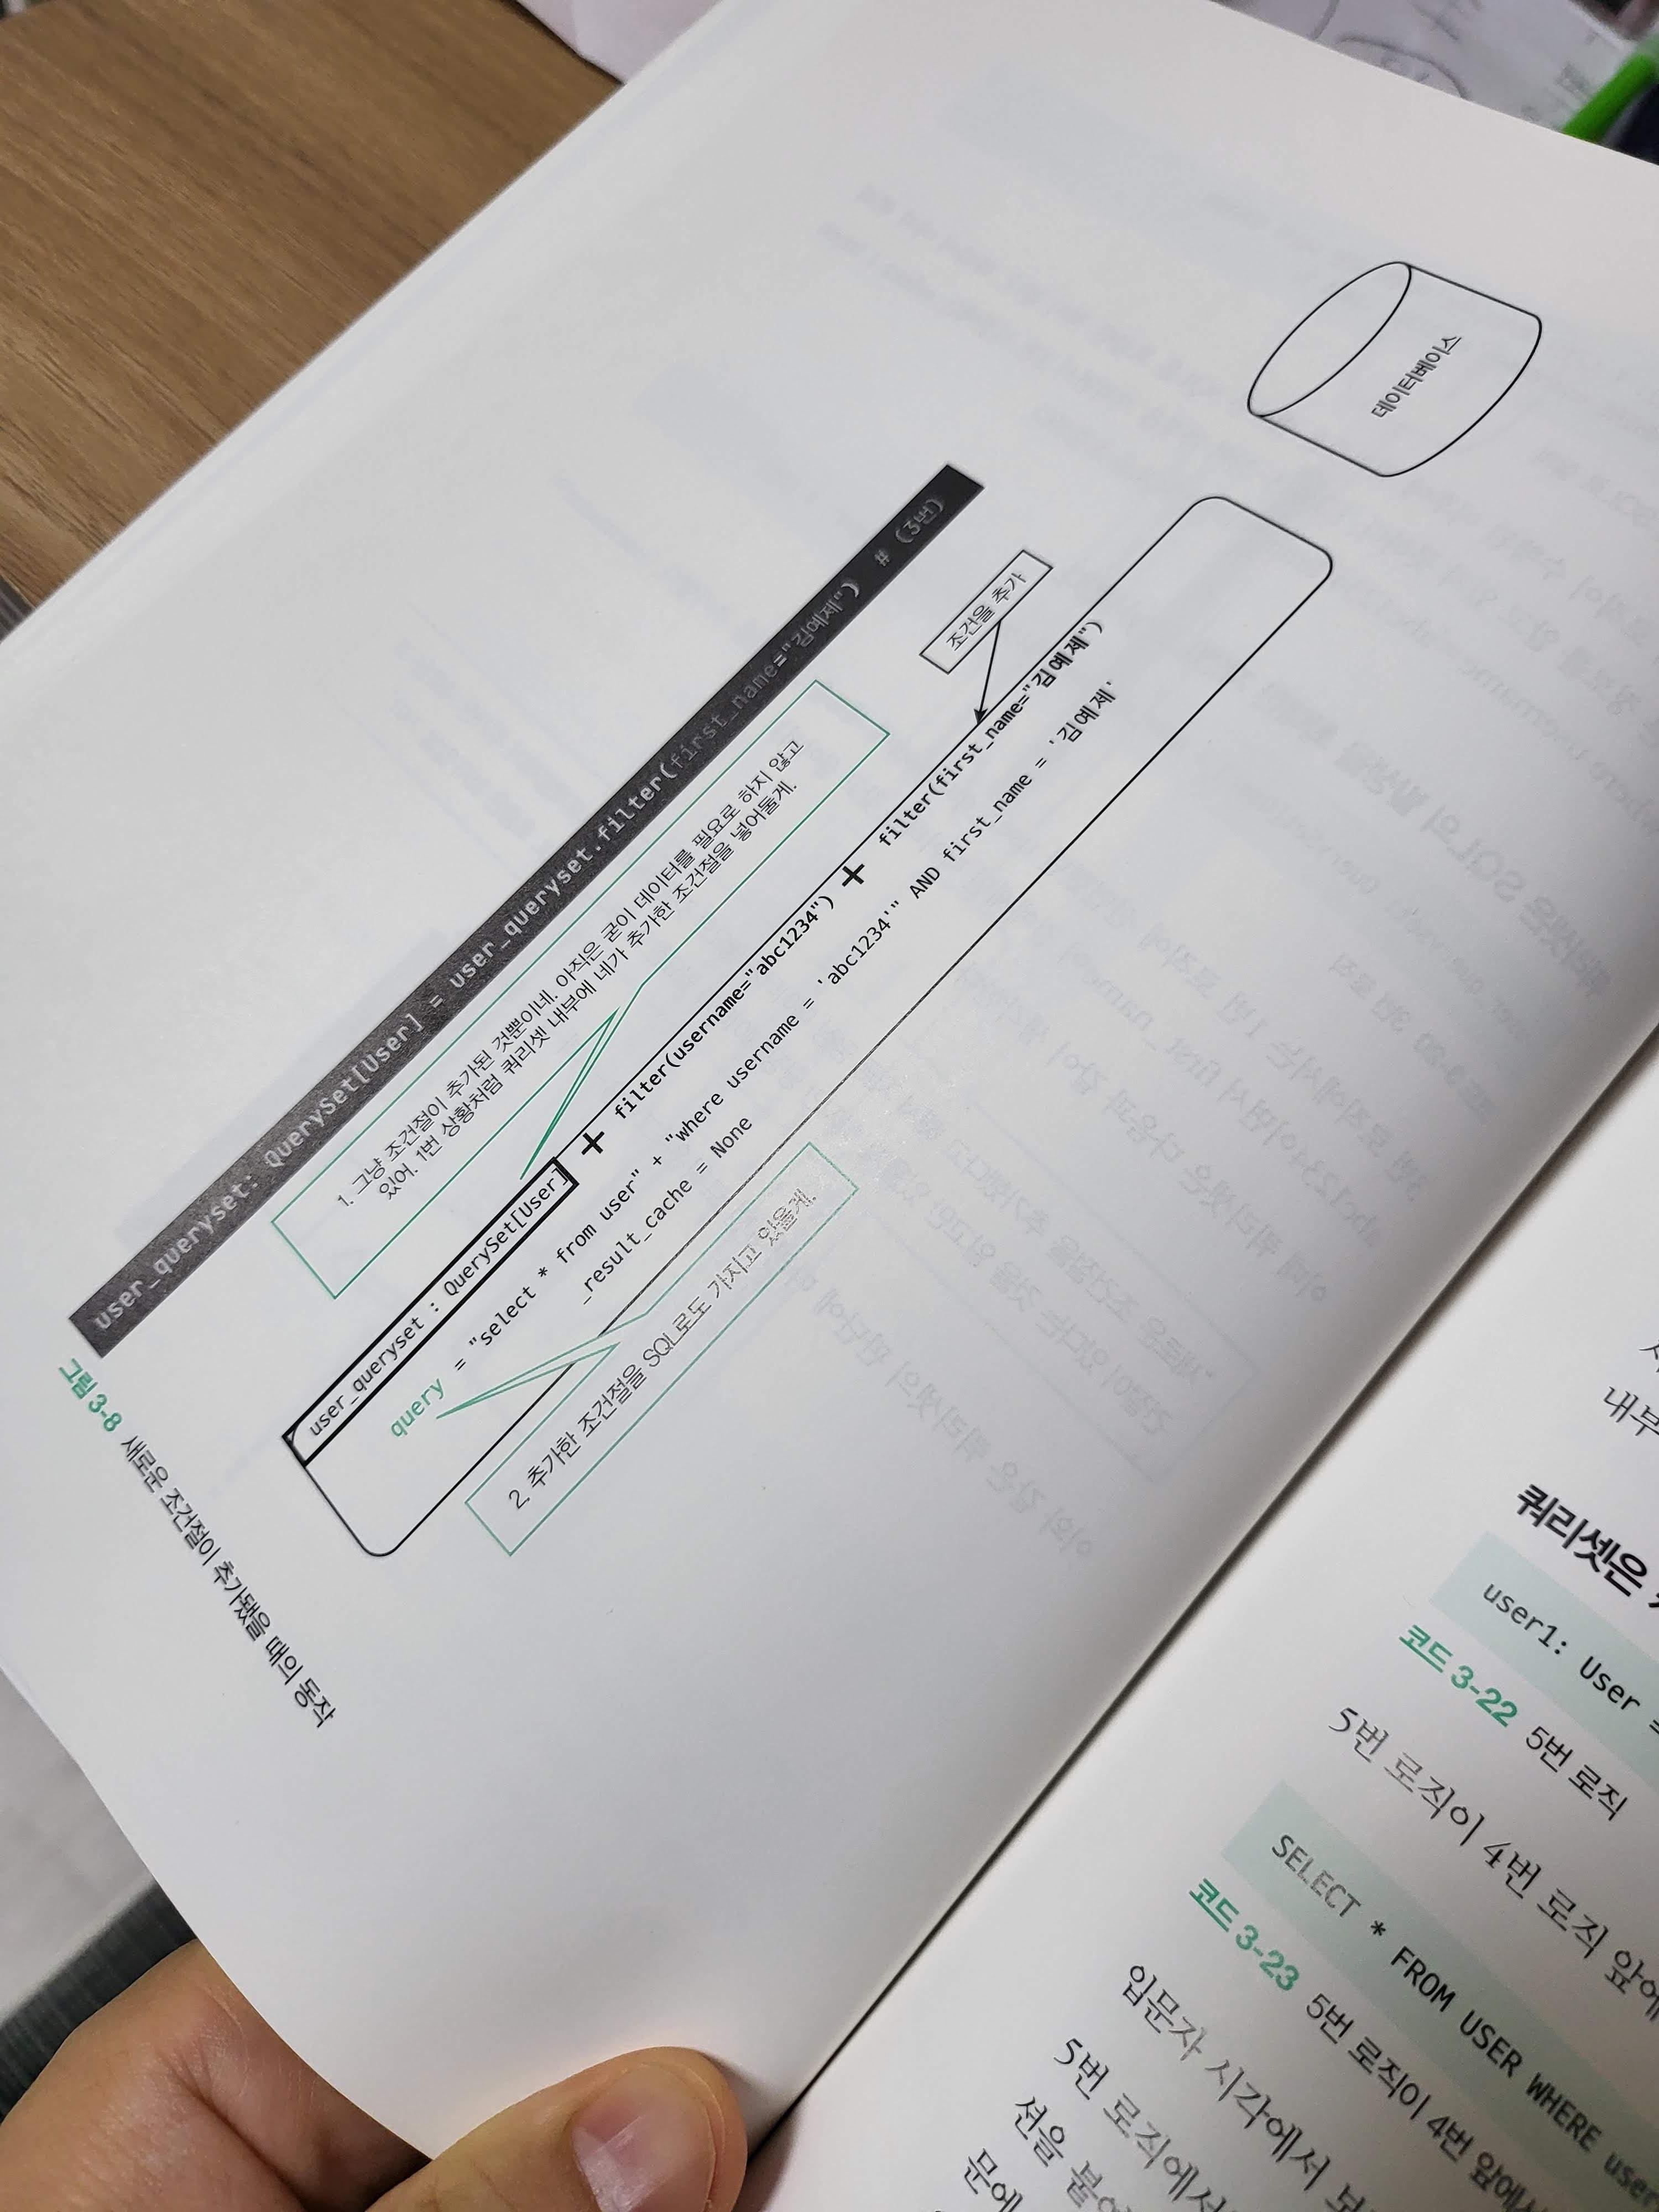 user_queryset: QuerySet[User] = user_queryset.filter(first_name="김예제") # (3번)
1. 그냥 조건절이 추가된 것뿐이네. 아직은 굳이 데이터를 필요로 하지 않고
있어. 1번 상황처럼 쿼리셋 내부에 네가 추가한 조건절을 넣어둘게.
조건을 추가
데이터베이스
user_queryset : QuerySet[User] + filter(username="abc1234") + filter(first_name="김예제")
query = "select * from user" + "where username = 'abc1234'" AND first_name = '김예제'
_result_cache = None
2. 추가한 조건절을 SQL로도 가지고 있을게.
그림 3-8 새로운 조건절이 추가됐을 때의 동작
내부
쿼리셋은
user1: User =
코드 3-22 5번 로직
5번 로직이 4번 로직 앞에
SELECT * FROM USER WHERE user
코드 3-23 5번 로직이 4번 앞에서
입문자 시각에서
5번 로직에서
션을 붙여
문에